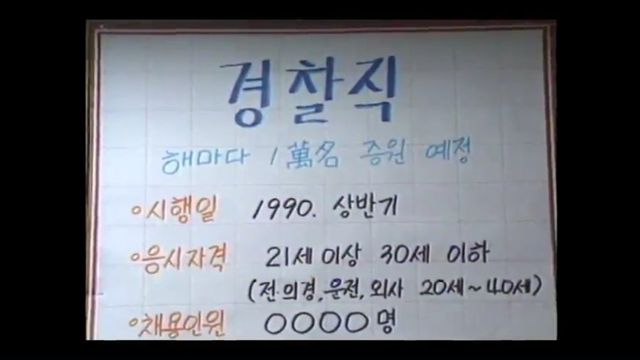 경찰직
해마다 1萬名 증원 예정
○시행일 1990. 상반기
○응시자격 21세 이상 30세 이하
(전·의경, 운전, 외사 20세~40세)
○채용인원 OOOO명